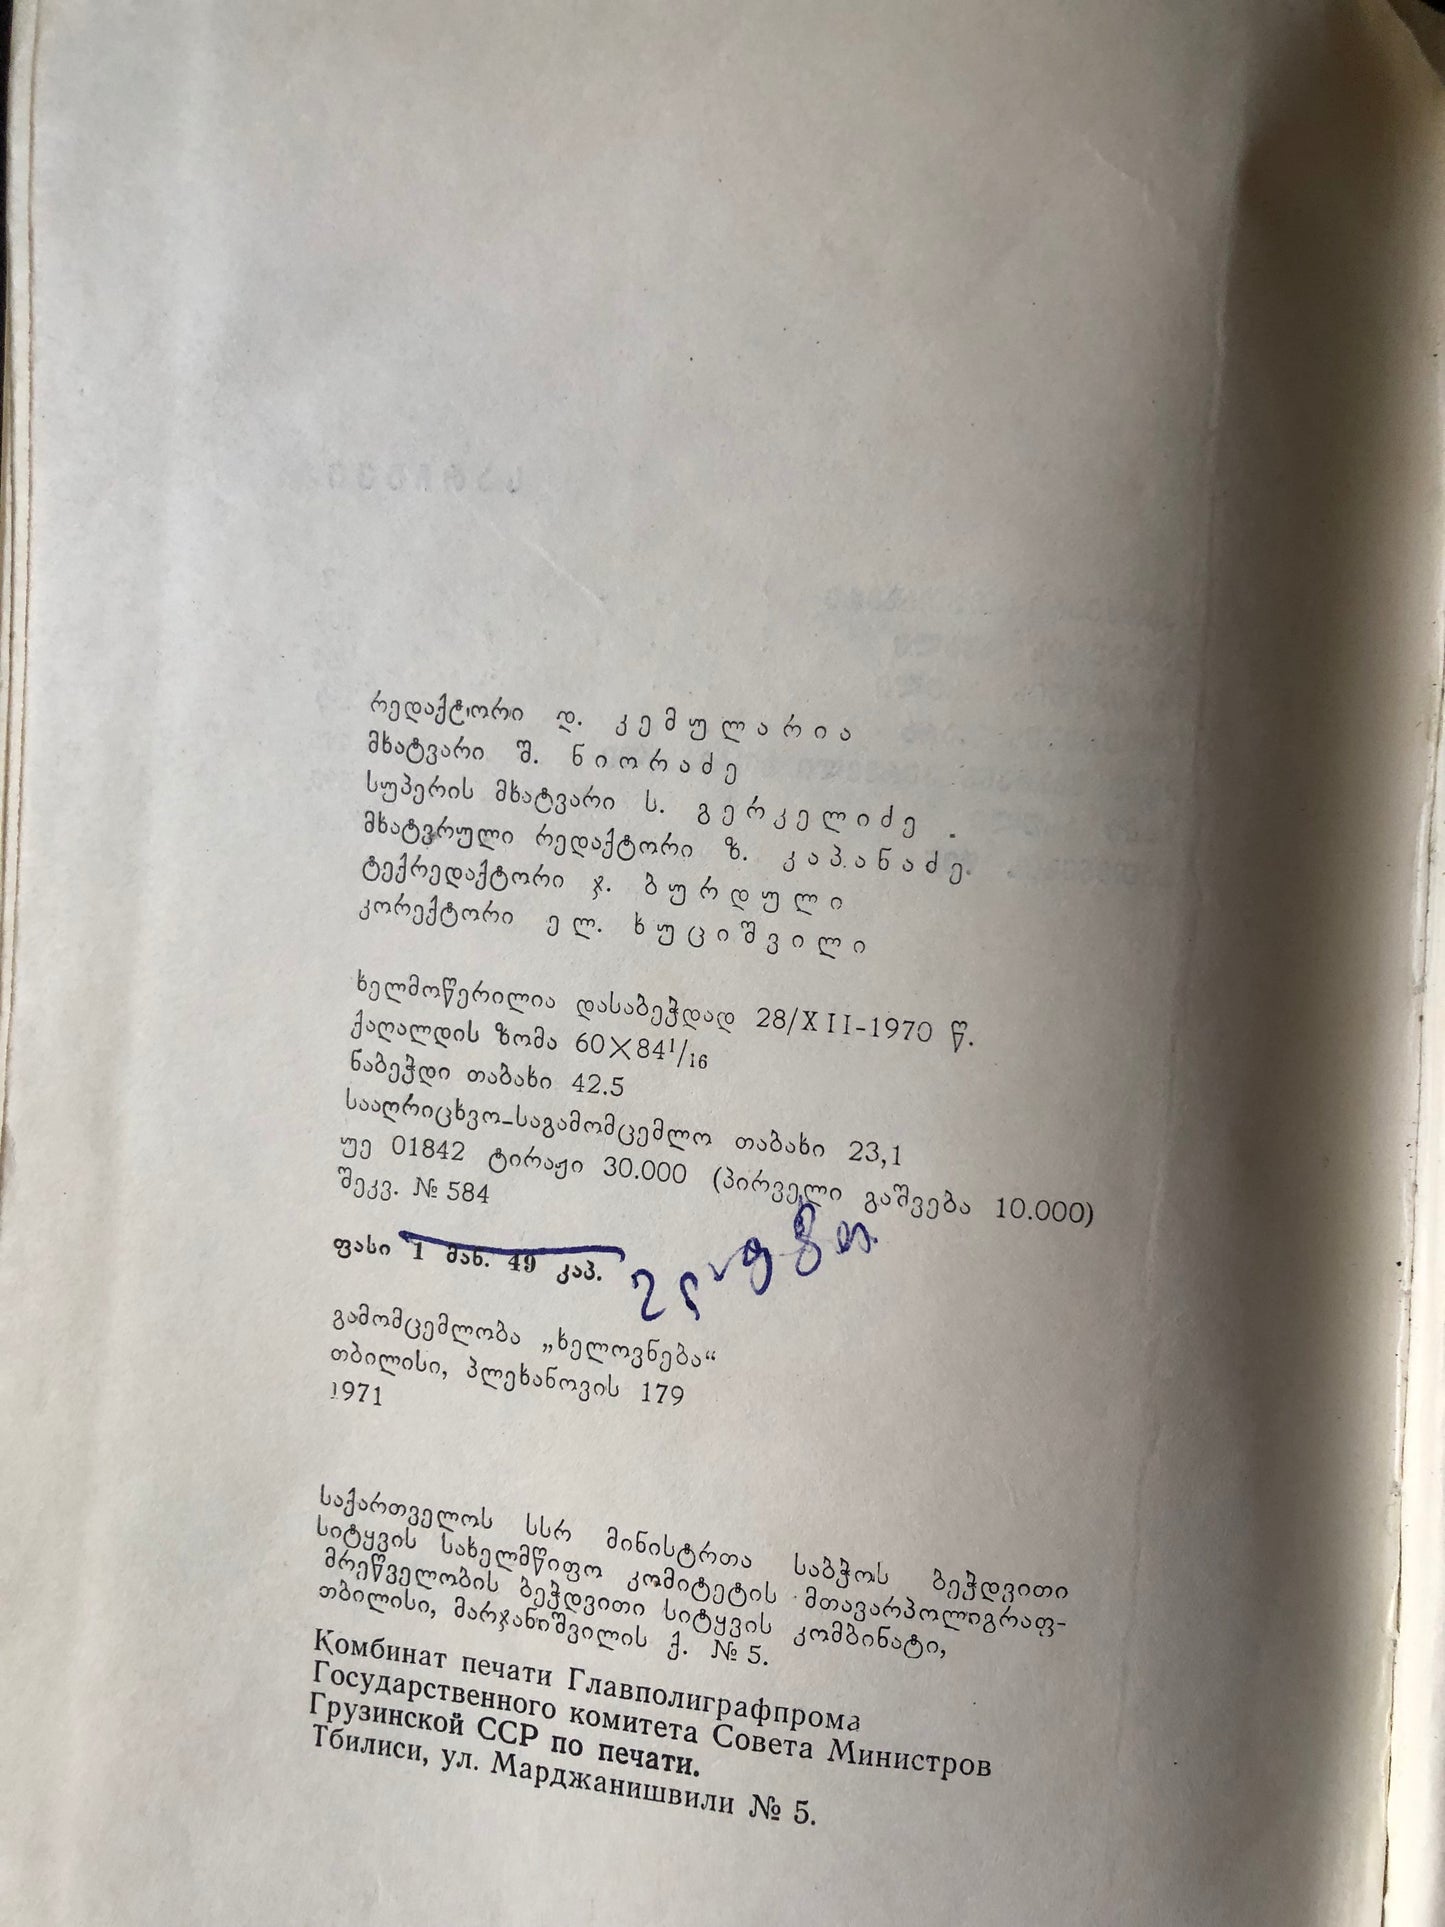 რედაქტორი დ. კემულარია
მხატვარი შ. ნიორაძე
სუპერის მხატვარი ს. გერკელიძე.
მხატვრული რედაქტორი ზ. კაპანაძე.
ტექრედაქტორი ჯ. ბურდული
კორექტორი ელ. ხუციშვილი
ხელმოწერილია დასაბეჭდად 28/XII-1970 წ.
ქაღალდის ზომა 60×84¹/₁₆
ნაბეჭდი თაბახი 42.5
სააღრიცხვო-საგამომცემლო თაბახი 23,1
უე 01842 ტირაჟი 30.000 (პირველი გაშვება 10.000)
შეკვ. № 584
ფასი 1 მან. 49 კაპ.
გამომცემლობა „ხელოვნება“
თბილისი, პლეხანოვის 179
1971
საქართველოს სსრ მინისტრთა საბჭოს ბეჭდვითი
სიტყვის სახელმწიფო კომიტეტის მთავარპოლიგრაფ-
მრეწველობის ბეჭდვითი სიტყვის კომბინატი,
თბილისი, მარჯანიშვილის ქ. № 5.
Комбинат печати Главполиграфпрома
Государственного комитета Совета Министров
Грузинской ССР по печати.
Тбилиси, ул. Марджанишвили № 5.